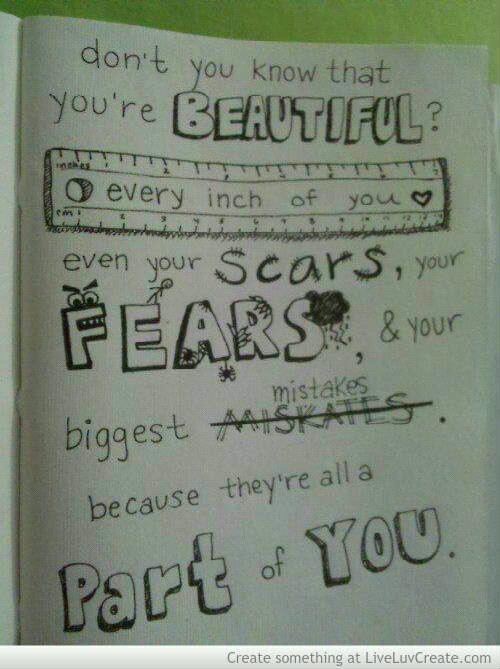 don't you know that
you're BEAUTIFUL?
inches
every inch of you
cm
even your Scars, your
FEARS, & your
mistakes
biggest MISKATES.
because they're all a
Part of YOU.
Create something at LiveLuvCreate.com